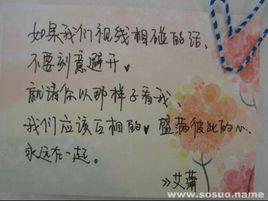 如果我们视线相碰的话,
不要刻意避开♥
就请你以那样子看我,
我们应该互相的♥ 盛满彼此的心.
永远在一起。
>>艾萧
www.sosuo.name